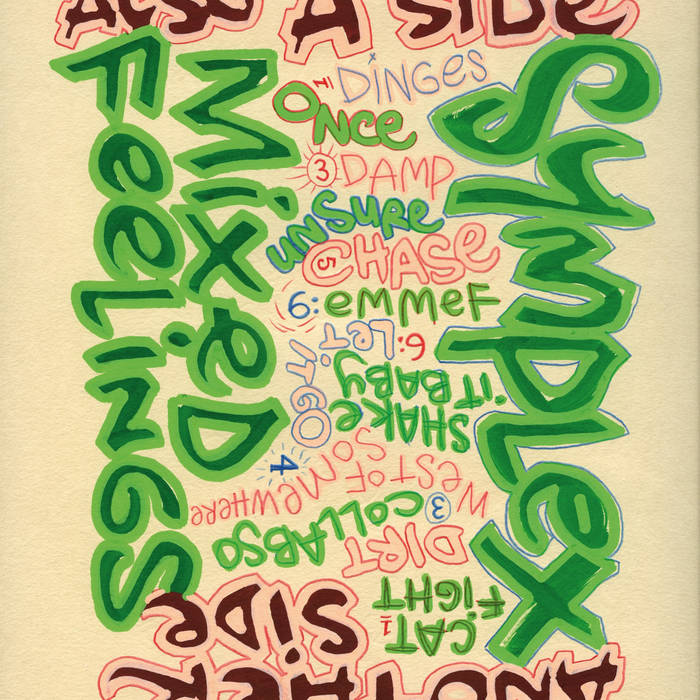 ALSO A SIDE
MixeD
FeeLiNGS
SYMPLEX
1 DiNGES
ONCe
3 DAMP
UNSURe
5 CHASe
6: emmeF
ANOTHER
SiDe
CAT 1
FIGHT
DIRT
3 COLLABSO
WEST OF
SOMEWHERE
4
SHAKe
iT BABY
6: LeT iT GO